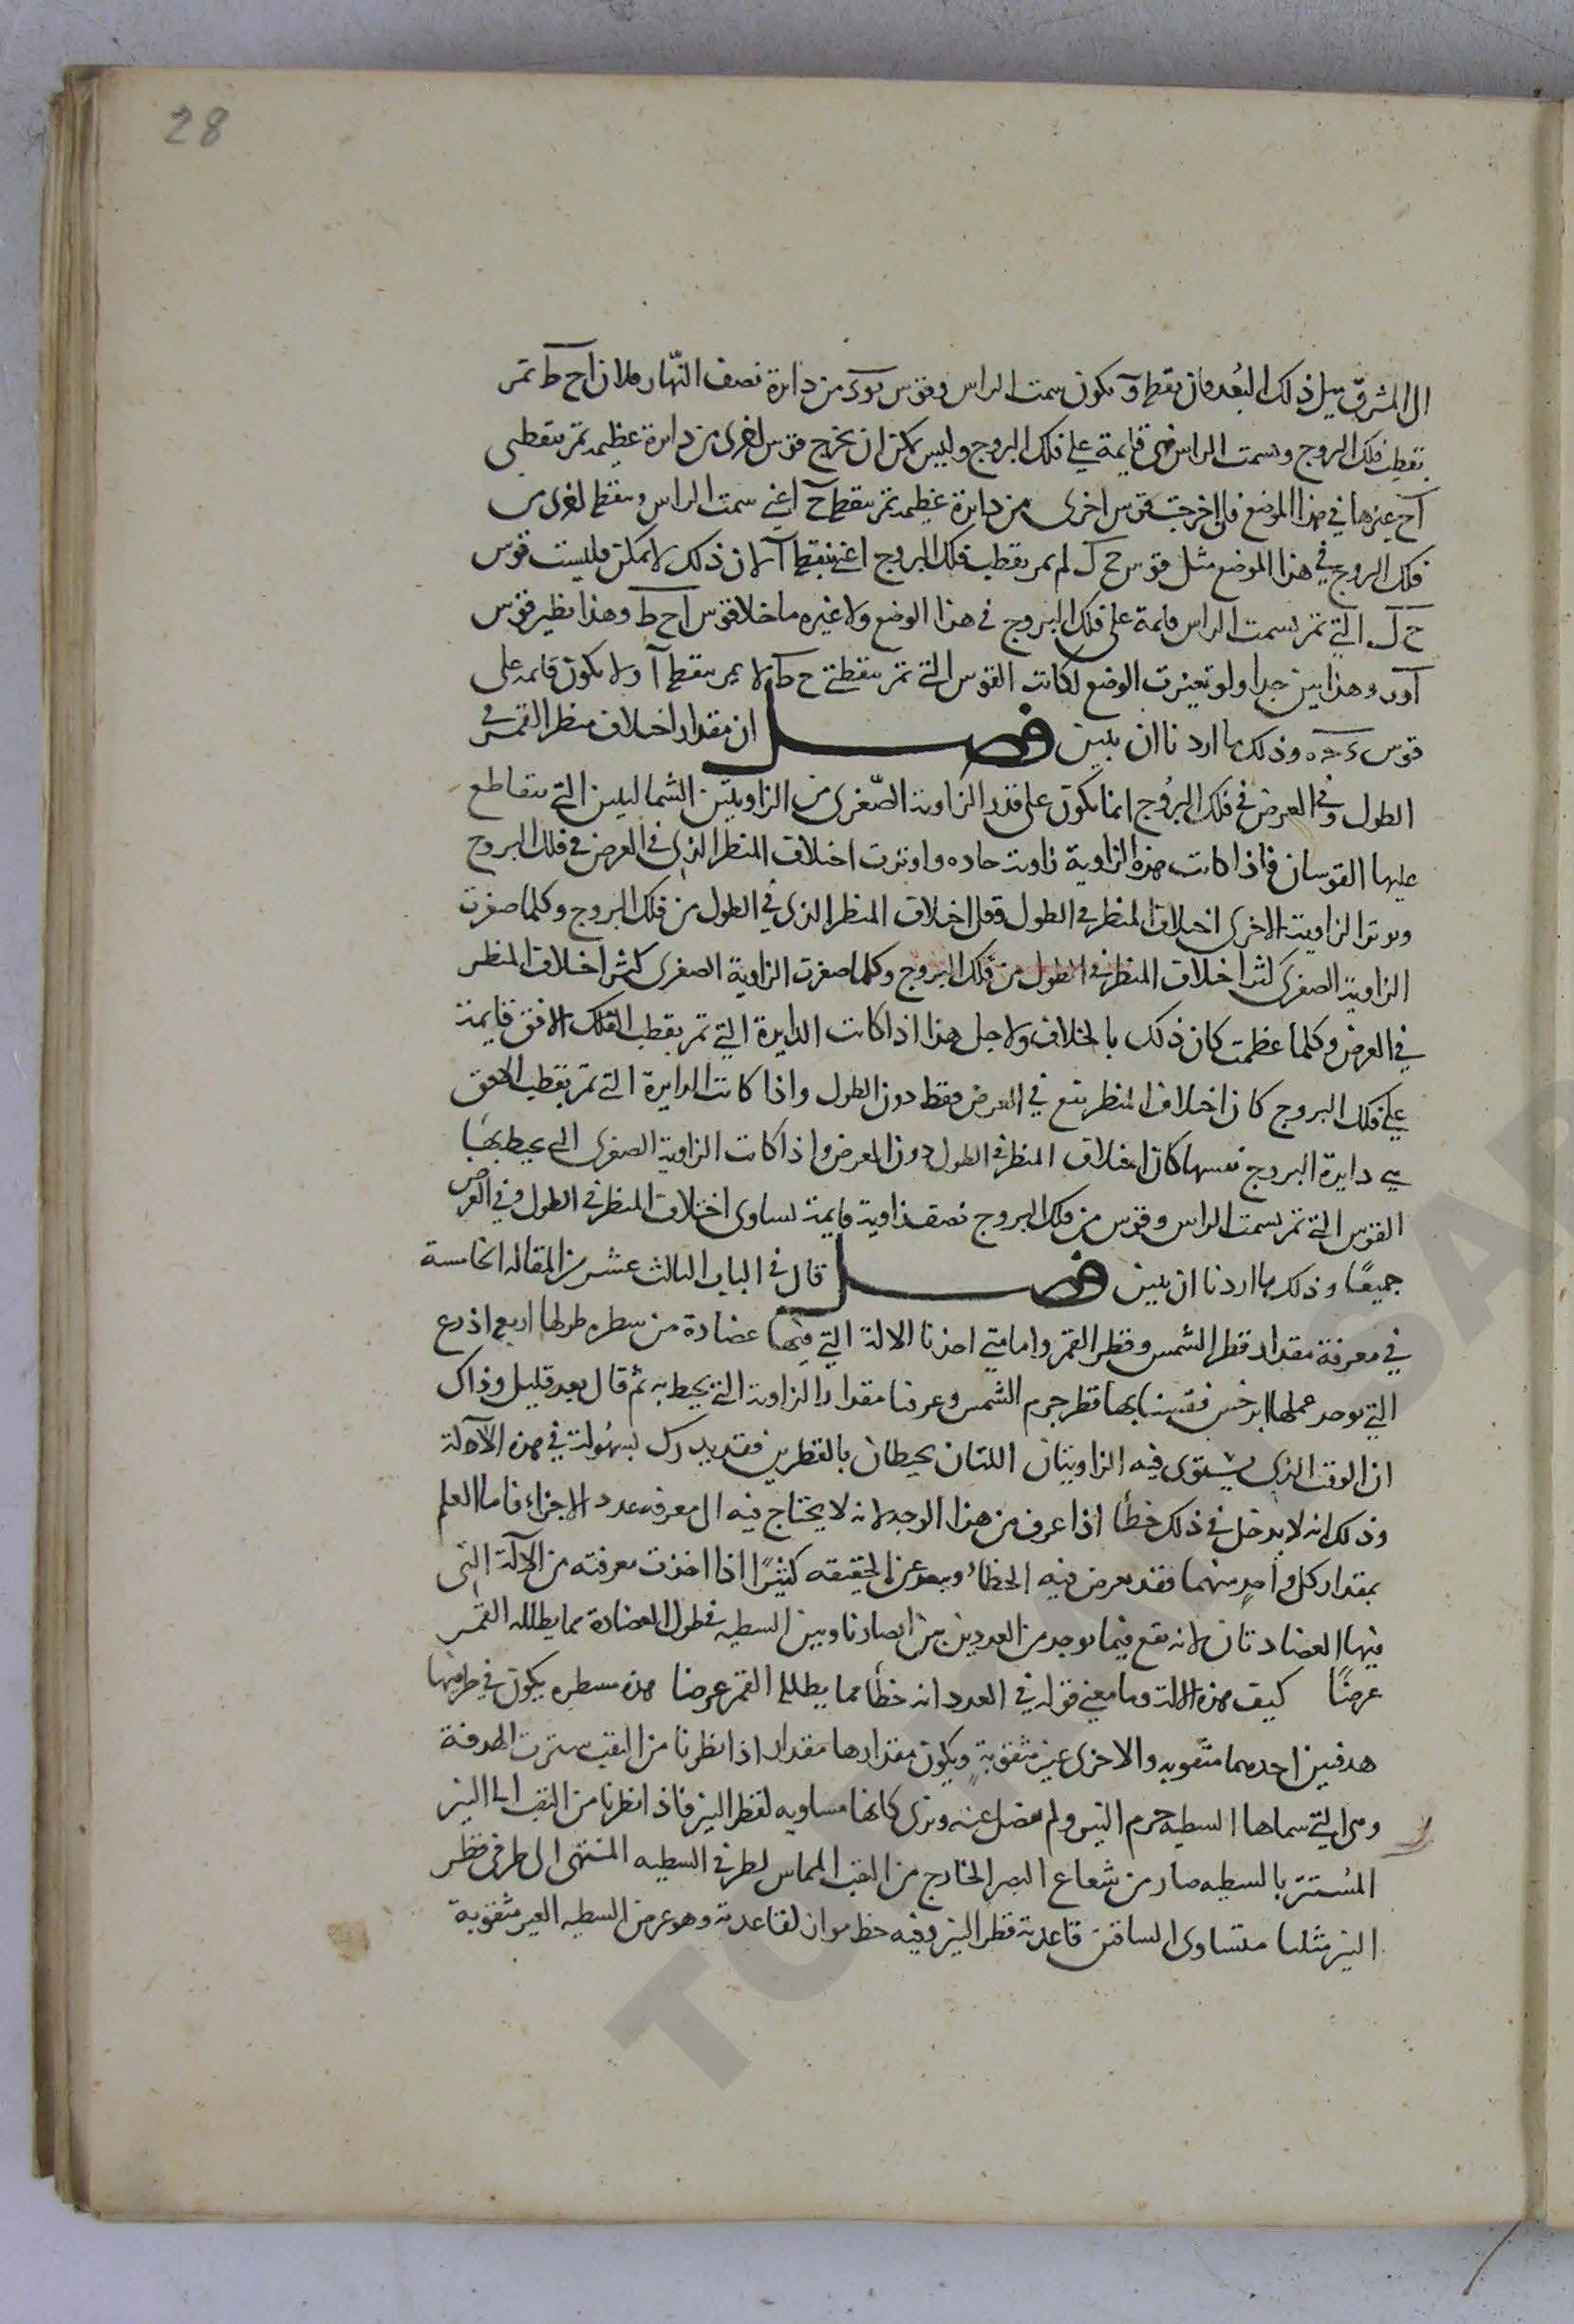 28
الى المشرق ميل ذلك البعد فان نقطة و تكون سمت الراس وقوس من دائرة نصف النهار فلان اح ط تمر
بقطب فلك البروج وبسمت الراس فهى قايمة على فلك البروج وليس يمكن ان تخرج قوس اخرى من دايرة عظيمة تمر بنقطتى
آح غيرها في هذا الموضع فان اخرجت قوس اخرى من دايرة عظيمة تمر بنقطة ح اعنى سمت الراس وبنقطة اخرى من
فلك البروج في هذا الموضع مثل قوس ح ك لم تمر بقطب فلك البروج اعنى بنقطة آ لان ذلك لا يمكن فليست قوس
ح ك التي تمر بسمت الراس قايمة على فلك البروج في هذا الوضع ولا غيره ما خلا قوس اح ط وهذا نظير قوس
وهذا بين جدا ولو تغيرت الوضع لكانت القوس التى تمر بنقطتى ح ط لا تمر بنقطة آ ولا تكون قايمة على
قوس وذلك ما اردنا ان نبين فصل ان مقدار اختلاف منظر القمر في
الطول وفي العرض في فلك البروج انما يكون على قدر الزاوية الصغرى من الزاويتين الشماليتين التي يتقاطع
عليها القوسان فاذا كانت هذه الزاوية زاوية حاده واوترت اختلاف المنظر الذي في العرض في فلك البروج
وتوتر الزاوية الاخرى اختلاف المنظر في الطول فقل اختلاف المنظر الذي في الطول من فلك البروج وكلما صغرت
الزاوية الصغرى كثر اختلاف المنظر في الطول من فلك البروج وكلما صغرت الزاوية الصغرى كثر اختلاف المنظر
في العرض وكلما عظمت كان ذلك بالخلاف ولاجل هذا اذا كانت الدايرة التي تمر بقطب الفلك الافق قايمة
على فلك البروج كان اختلاف المنظر يقع في العرض فقط دون الطول واذا كانت الدايرة التي تمر بقطب الافق
هي دايرة البروج نفسها كان اختلاف المنظر في الطول دون العرض واذا كانت الزاوية الصغرى التى يحيط بها
القوس التي تمر بسمت الراس وقوس من فلك البروج نصف زاوية قايمة تساوى اختلاف المنظر في الطول وفي العرض
جميعًا وذلك ما اردنا ان نبين فصل قال في الباب الثالث عشر من المقالة الخامسة
في معرفة مقدار قطر الشمس وقطر القمر واما متى اخذنا الالة التي فيها عضادة من سطره طولها اربع اذرع
التي توجد عملها ابرخس فقسنا بها قطر جرم الشمس وعرفنا مقدار الزاوية التي يحيط به ثم قال بعد قليل وذاك
ان الوقت الذي يستوى فيه الزاويتان اللتان يحيطان بالقطرين فقد يدرك بسهولة في هذه الآلة
وذلك انه لا يدخل في ذلك خطأ اذا عرف من هذا الوجه لانه لا يحتاج فيه الى معرفة عدد الاجزاء فاما العلم
بمقدار كل واحدٍ منهما فقد يعرض فيه الخطأ وببعد عن الحقيقه كثيرًا اذا اخذت معرفته من الآلة التى
فيها العضادتان لانه يقع فيما يوجد من العددين بين ابصارنا وبين السطيه في طول العضادة مما يطلله القمر
عرضًا كيف هذه الالة وما معنى قوله في العدد انه خطأ مما يطلله القمر عرضا هذه مسطره يكون في طرفيها
هدفين احدهما مثقوبه والاخرى غير مثقوبةٍ ويكون مقدارها مقدار اذا نظرنا من الثقب سترت الهدفة
وهى التي سماها السطيه جرم النير ولم يفضل عنه وترى كانها مساويه لقطر النير فاذا نظرنا من الثقب الى النير
المستتر بالسطيه صار من شعاع البصر الخارج من الثقب المماس لطرفي السطيه المنتهى الى طرفى قطر
النير مثلثا متساوى الساقين قاعدته قطر النير وفيه خط مواز لقاعدته وهو عرض السطيه الغير مثقوبة